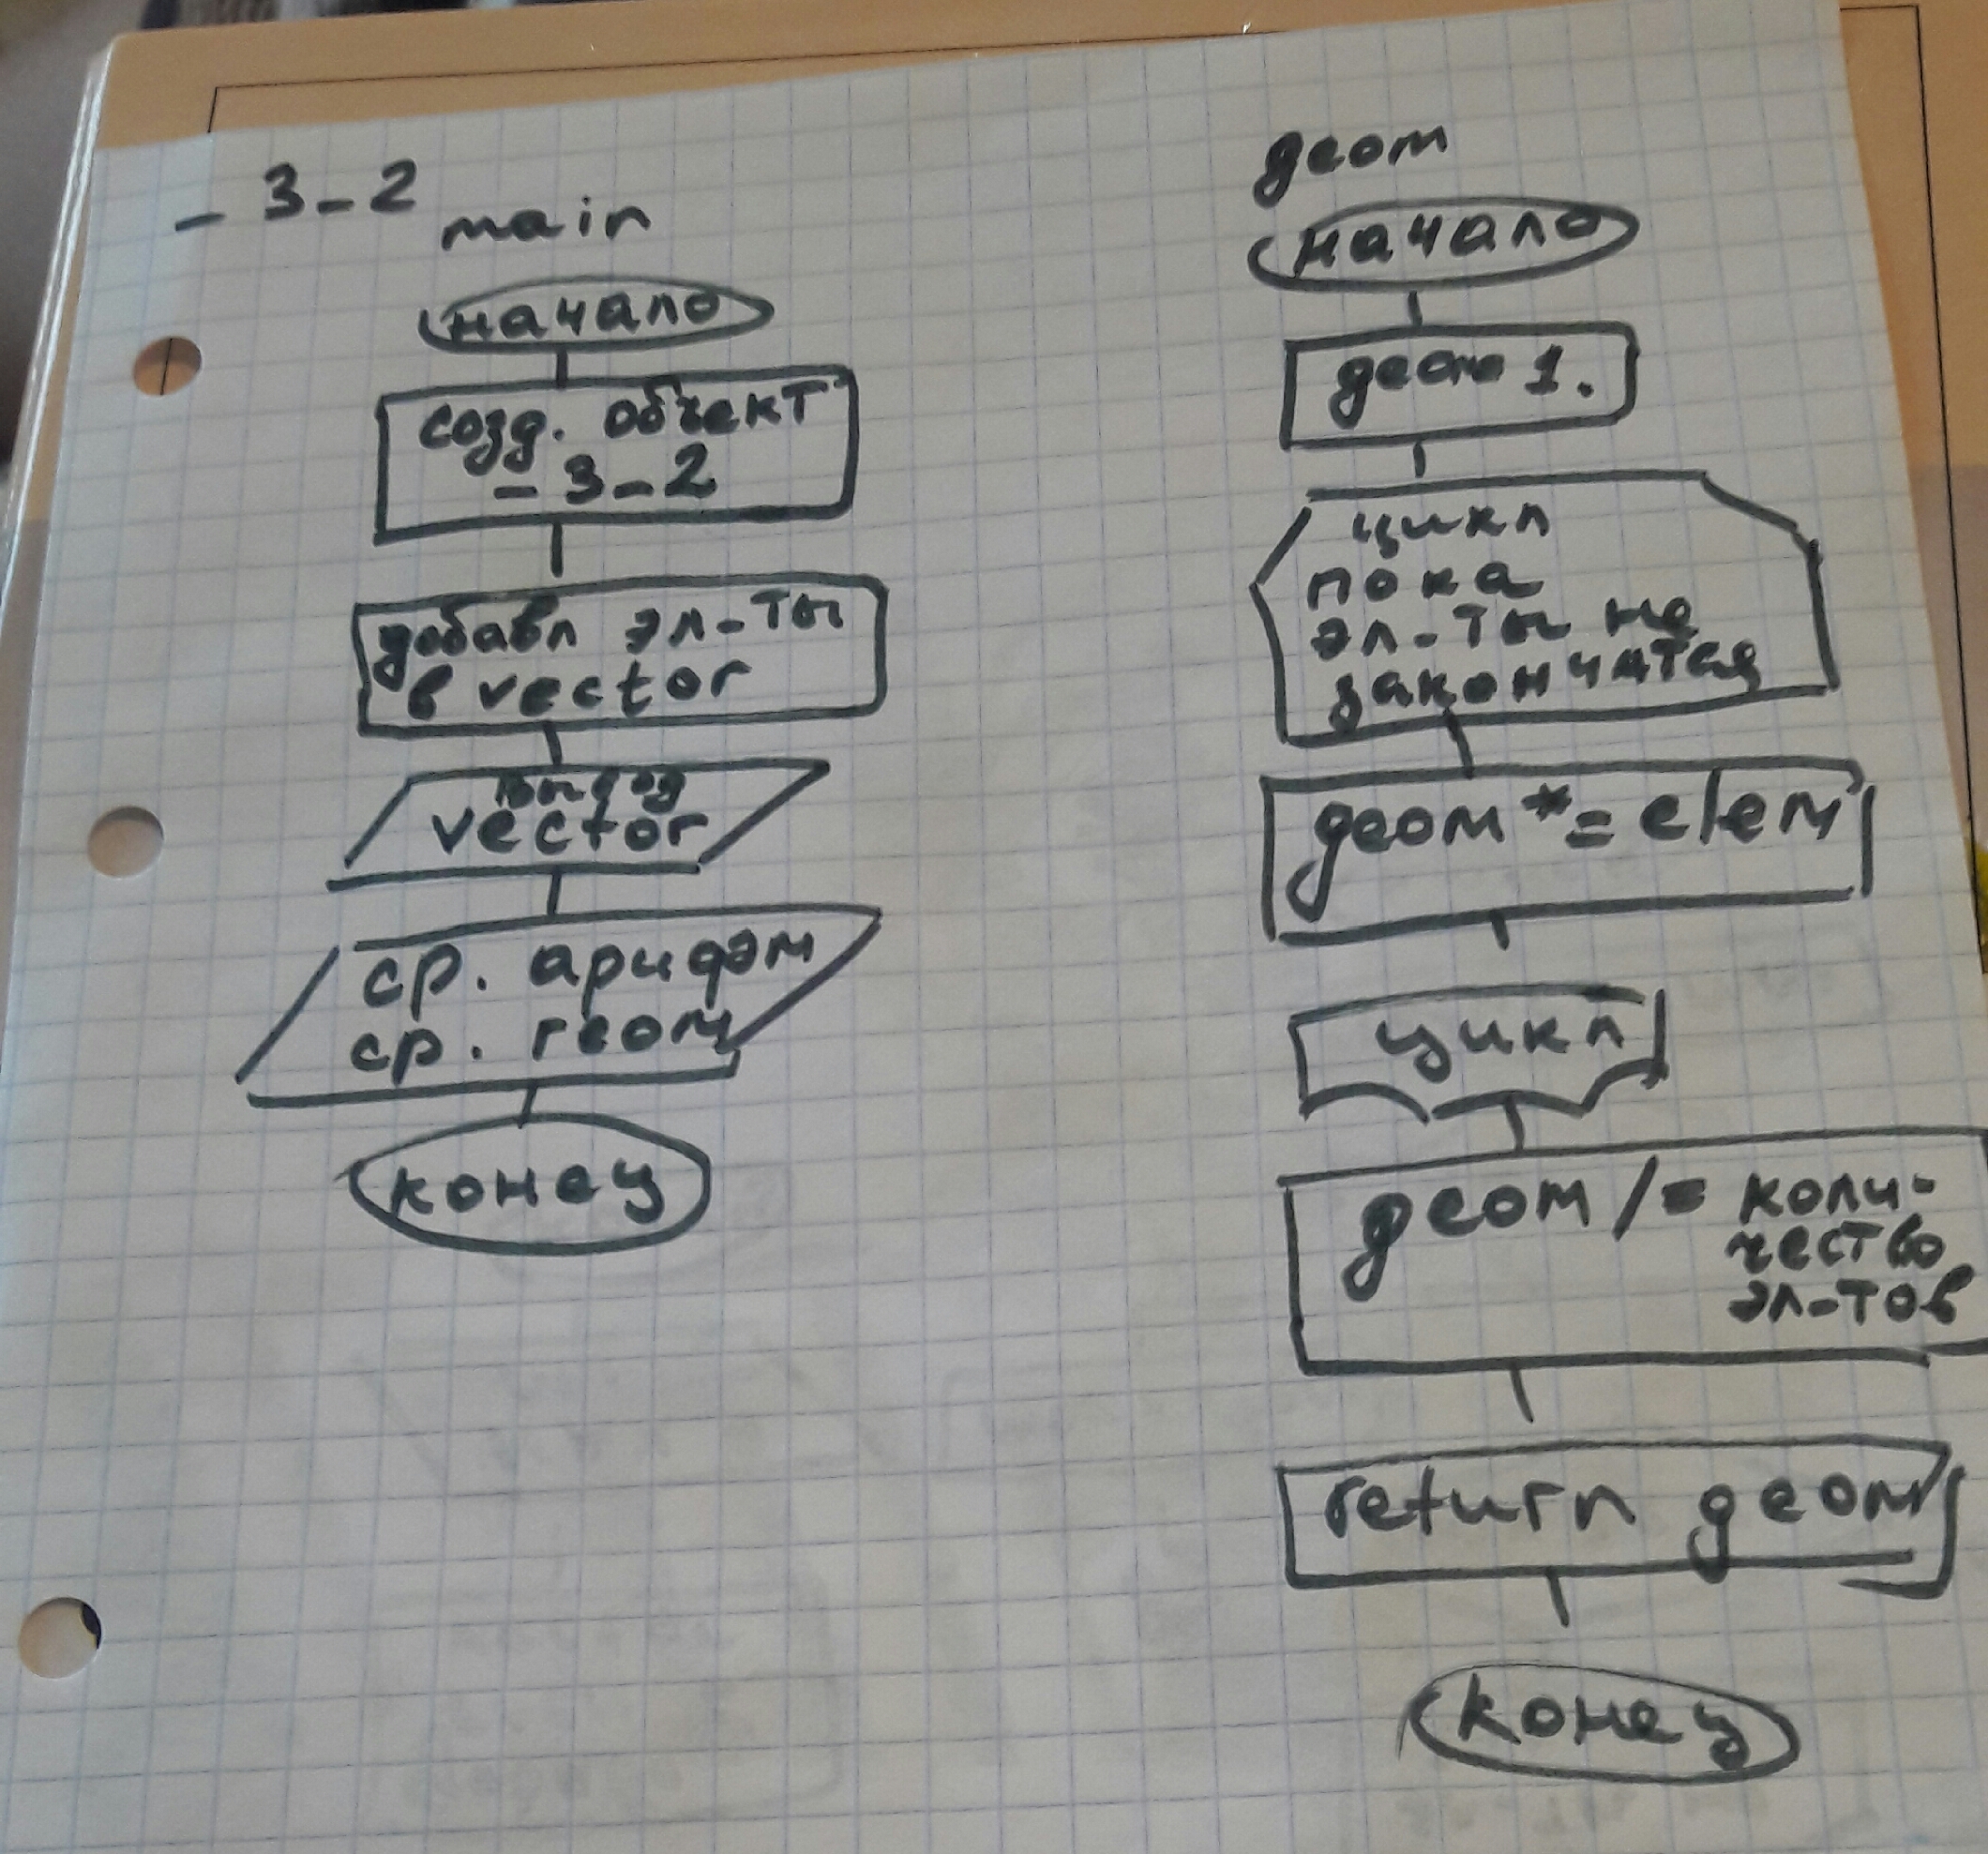 _ 3_2
main
начало
созд. объект
_ 3_2
добавл эл-ты
в vector
вывод
vector
ср. арифм
ср. геом
конец
geom
начало
geom 1.
цикл
пока
эл-ты не
закончатся
geom *= elem
цикл
geom /= коли-
чество
эл-тов
return geom
конец